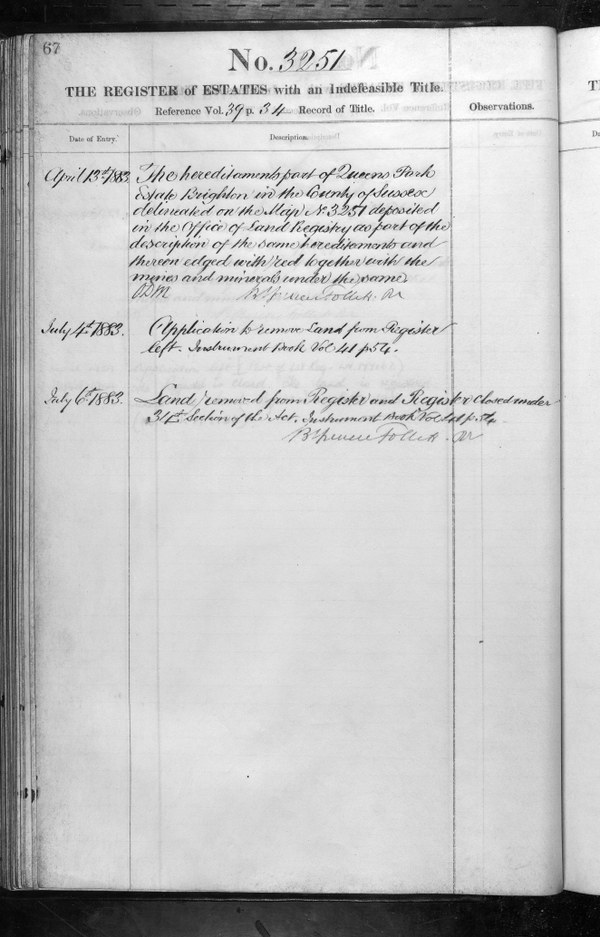 67
No. 3251
THE REGISTER of ESTATES with an Indefeasible Title.
Reference Vol. 39 p. 34 Record of Title.
Observations.
Date of Entry.
Description.
April 13th 1883.
The hereditaments part of Queens Park
Estate Brighton in the County of Sussex
delineated on the Map No 3251 deposited
in the Office of Land Registry as part of the
description of the same hereditaments and
thereon edged with red together with the
mines and minerals under the same.
B Spencer Follett
July 4th 1883.
Application to remove Land from Register
left. Instrument Book Vol 41 p 54.
July 6th 1883.
Land removed from Register and Register closed under
34th Section of the Act. Instrument Book Vol 41 p. 54
B Spencer Follett